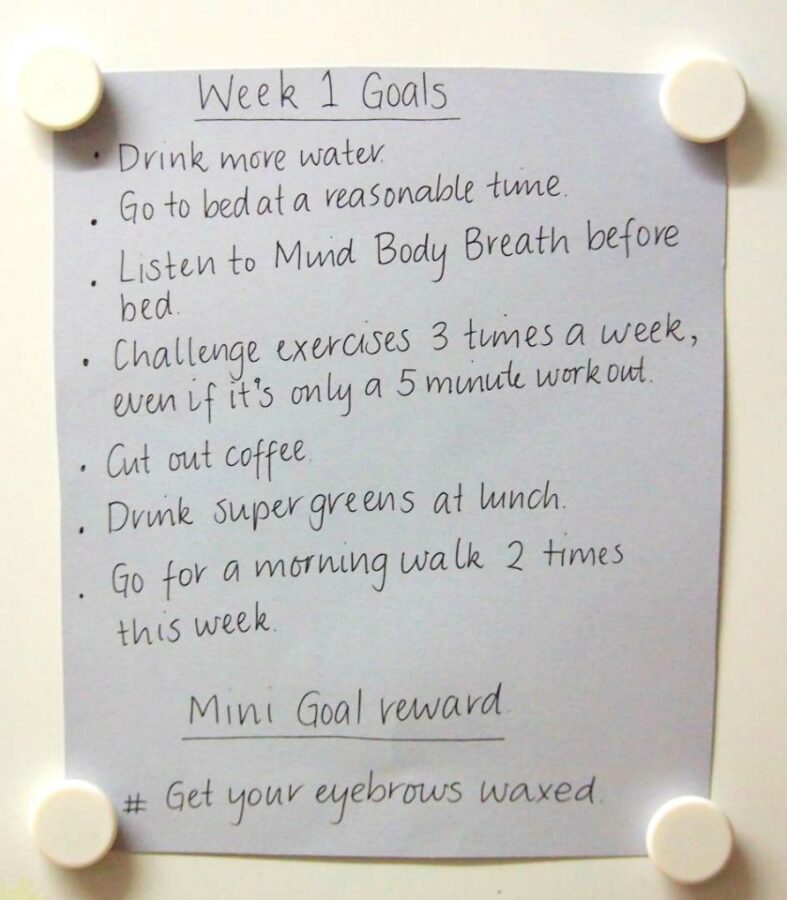 Week 1 Goals
• Drink more water.
• Go to bed at a reasonable time.
• Listen to Mind Body Breath before
bed.
• Challenge exercises 3 times a week,
even if it's only a 5 minute workout.
• Cut out coffee.
• Drink super greens at lunch.
• Go for a morning walk 2 times
this week.
Mini Goal reward
# Get your eyebrows waxed.